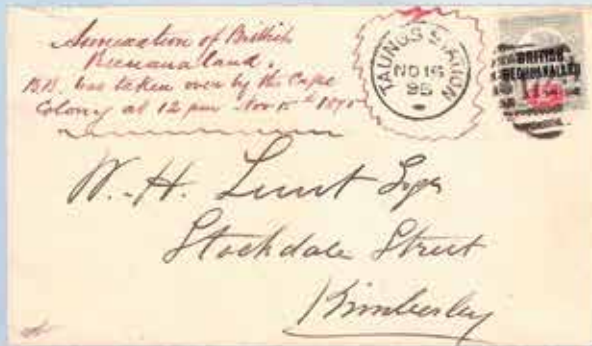 Annexation of British
Bechuanaland.
B.B. was taken over by the Cape
Colony at 12 pm Nov 15th 1895
TAUNGS STATION
NO 16
95
BRITISH
BECHUANALAND
W. H. Lunt Esqr
Stockdale Street
Kimberley